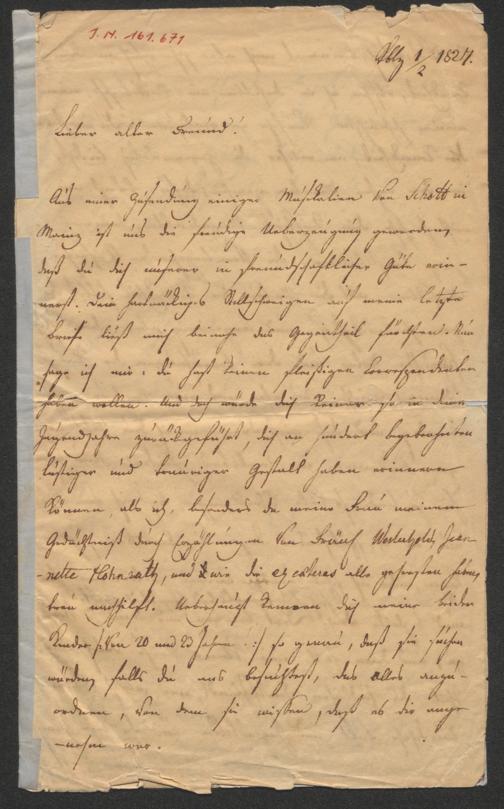 I. N. 161.671
Cblz 1/2 1827.
Lieber alter Freund!
Aus einer Zusendung einiger Musikalien von Schott in
Mainz ist uns die freudige Ueberzeugung geworden,
daß du dich unserer in freundschaftlicher Güte erin-
nerst. Dein hartnäckiges Stillschweigen auf meine letzte
Briefe ließ mich beinahe das Gegentheil fürchten. Nun
sage ich mir: du hast keinen fleißigen Correspondenten
haben wollen. Und doch würde dich keiner so in deine
Jugendjahre zurückgeführt, dich an hundert Begebenheiten
lustiger und trauriger Gestalt haben erinnern
können, als ich, besonders da meine Frau meinem
Gedächtniß durch Erzählungen von Fräul Westerhold, Jean-
-nette Hohnrath, und wie die ex exteras alle geheißen haben,
treu nachhilft. Ueberhaupt kennen dich meine beiden
Kinder /: von 20 und 23 Jahren :/ so genau, daß sie suchen
würden, falls du uns besuchtest, das alles anzu-
ordnen, von dem sie wissen, daß es dir ange-
-nehm war.